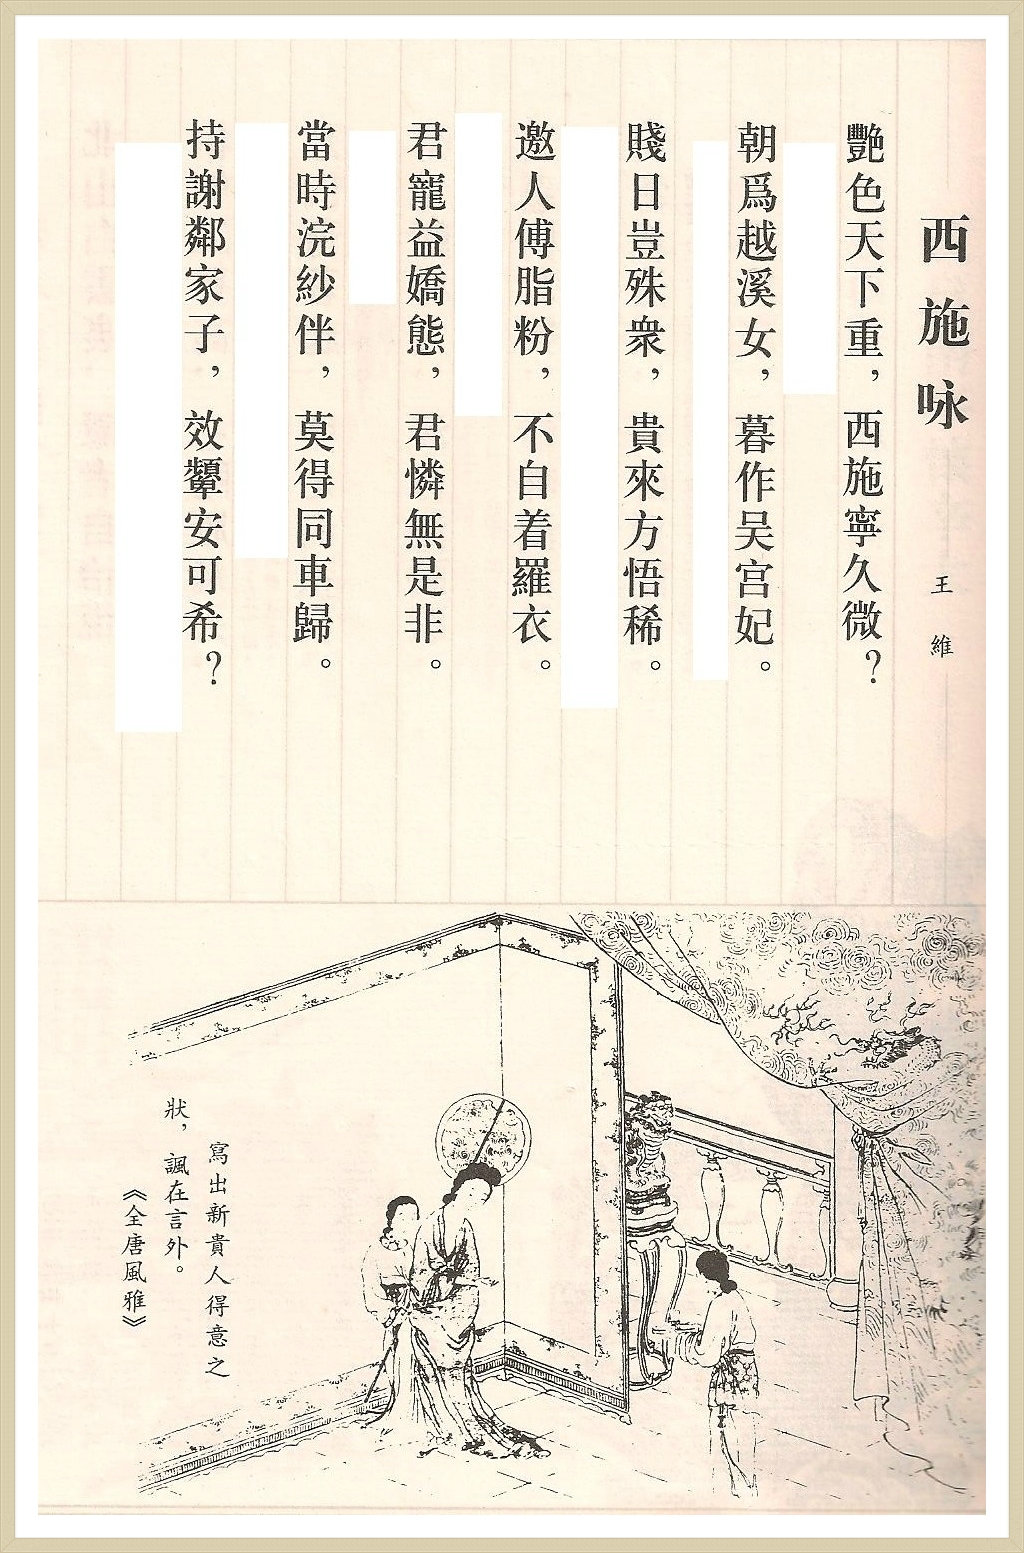 西施咏
王維
艷色天下重，西施寧久微？
朝爲越溪女，暮作吴宫妃。
賤日豈殊衆，貴來方悟稀。
邀人傅脂粉，不自着羅衣。
君寵益嬌態，君憐無是非。
當時浣紗伴，莫得同車歸。
持謝鄰家子，效顰安可希？
寫出新貴人得意之
狀，諷在言外。
《全唐風雅》